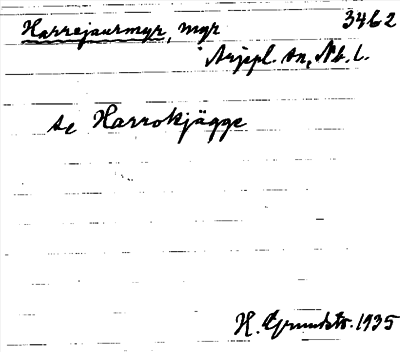 3462
Harrejaurmyr, myr
Arjepl. sn, Nb. l.
se Harrokjägge
H. Grundstr. 1935